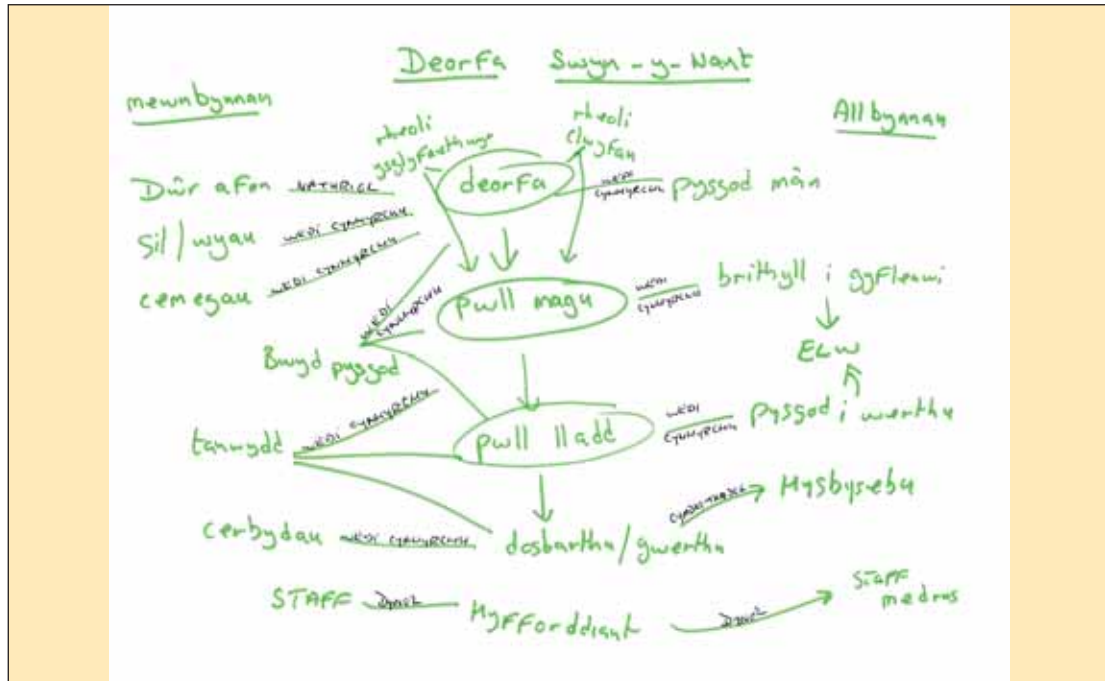 Deorfa Swyn-y-Nant
mewnbynnau
Allbynnau
rheoli
ysglyfaethwyr
rheoli
clwyfau
Dŵr afon NATURIOL
deorfa
WEDI
CYNHYRCHU
pysgod mân
Sil/wyau WEDI CYNHYRCHU
cemegau WEDI CYNHYRCHU
pwll magu
WEDI
CYNHYRCHU
brithyll i gyflenwi
WEDI
CYNHYRCHU
Bwyd pysgod
ELW
tanwydd WEDI CYNHYRCHU
pwll lladd
WEDI
CYNHYRCHU
pysgod i werthu
cerbydau WEDI CYNHYRCHU dosbarthu/gwerthu
Hysbysebu
STAFF DYNOL Hyfforddiant DYNOL
STAFF
medrus